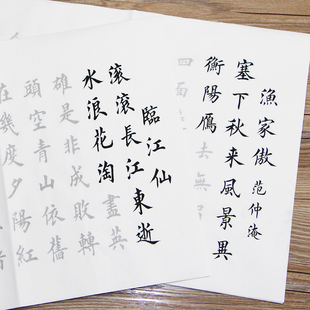 漁家傲 范仲淹
塞下秋来風景異
衡陽鴈去無
四面
臨江仙
滚滚長江東逝
水浪花淘盡英
雄是非成敗轉
頭空青山依舊
在幾度夕陽紅